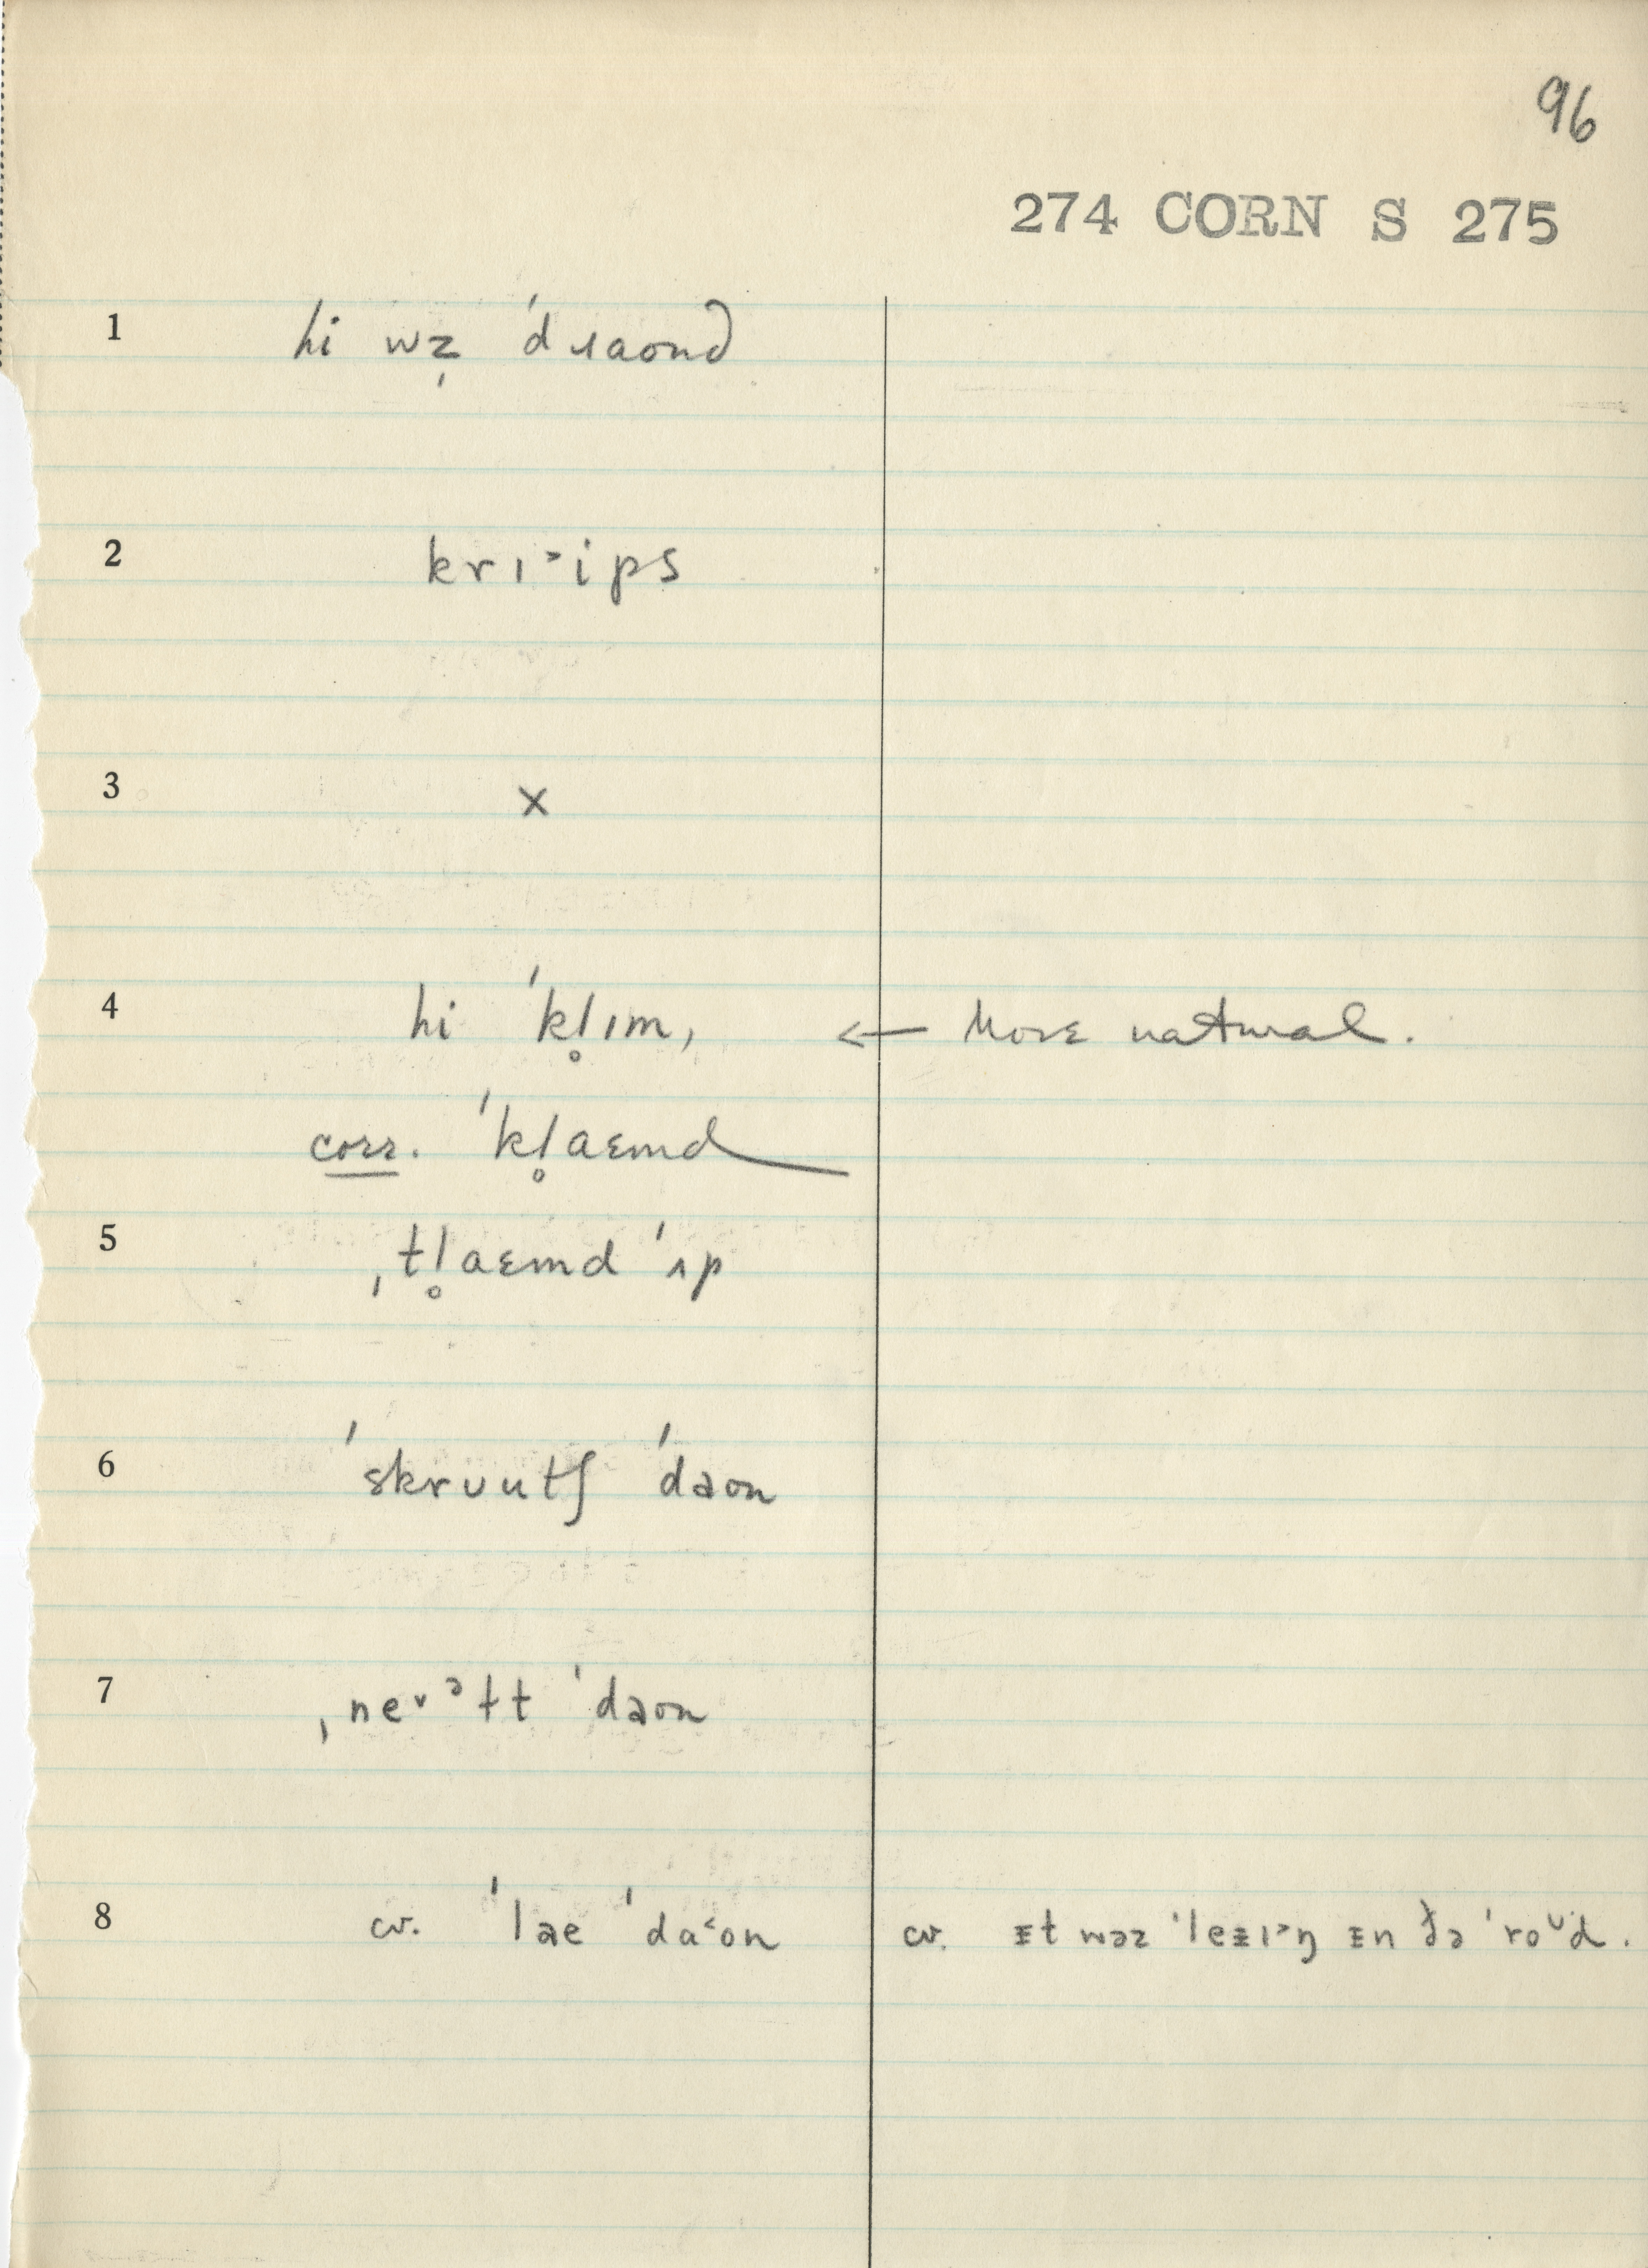 96
274 CORN S 275
1 hi wz̩ ˈdɹaond
2 krɪ˃ips
3 x
4 hi ˈkl̥ɪm, ← More natural.
corr. ˈkl̥aɛmd
5 ˌtl̥aɛmd ˈʌp
6 ˈskrʊutʃ ˈdaon
7 ˌneᵛᵊɫt ˈdaon
8 cv. ˈlae ˈda˂on cv. ɪt wəz ˈleɪɪ˃ŋ ɪn ðə ˈroᶷd.